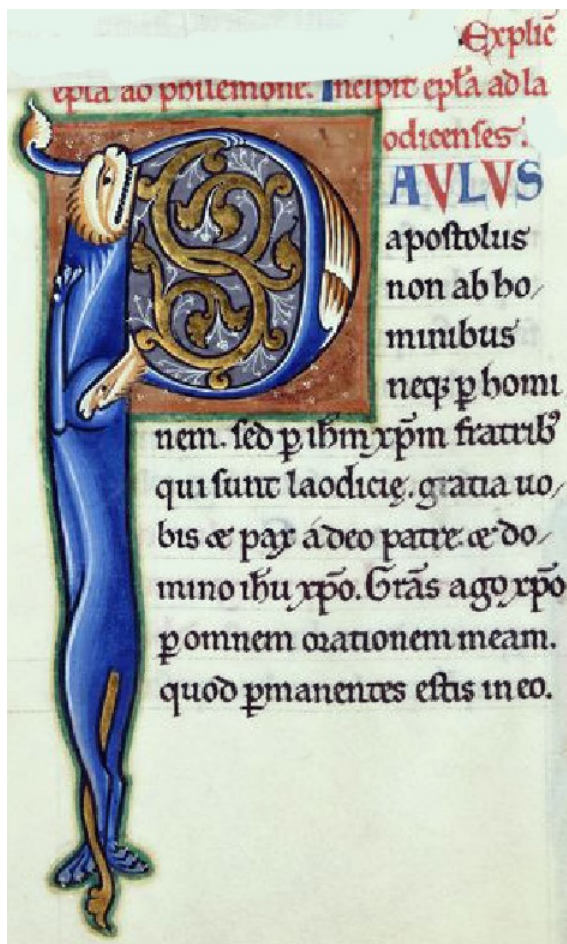 Explic̄
epĺa ad philemone. Incipit epĺa ad la
odicenses.
PAULUS
apostolus
non ab ho
minibus
neq; ꝑ homi
nem. sed ꝑ ihm̄ xp̄m fratrib;
qui sunt laodicię. gratia uo
bis & pax a deo patre & do
mino ihu xp̄o. Grās ago xp̄o
ꝑ omnem orationem meam.
quod ꝑmanentes estis in eo.